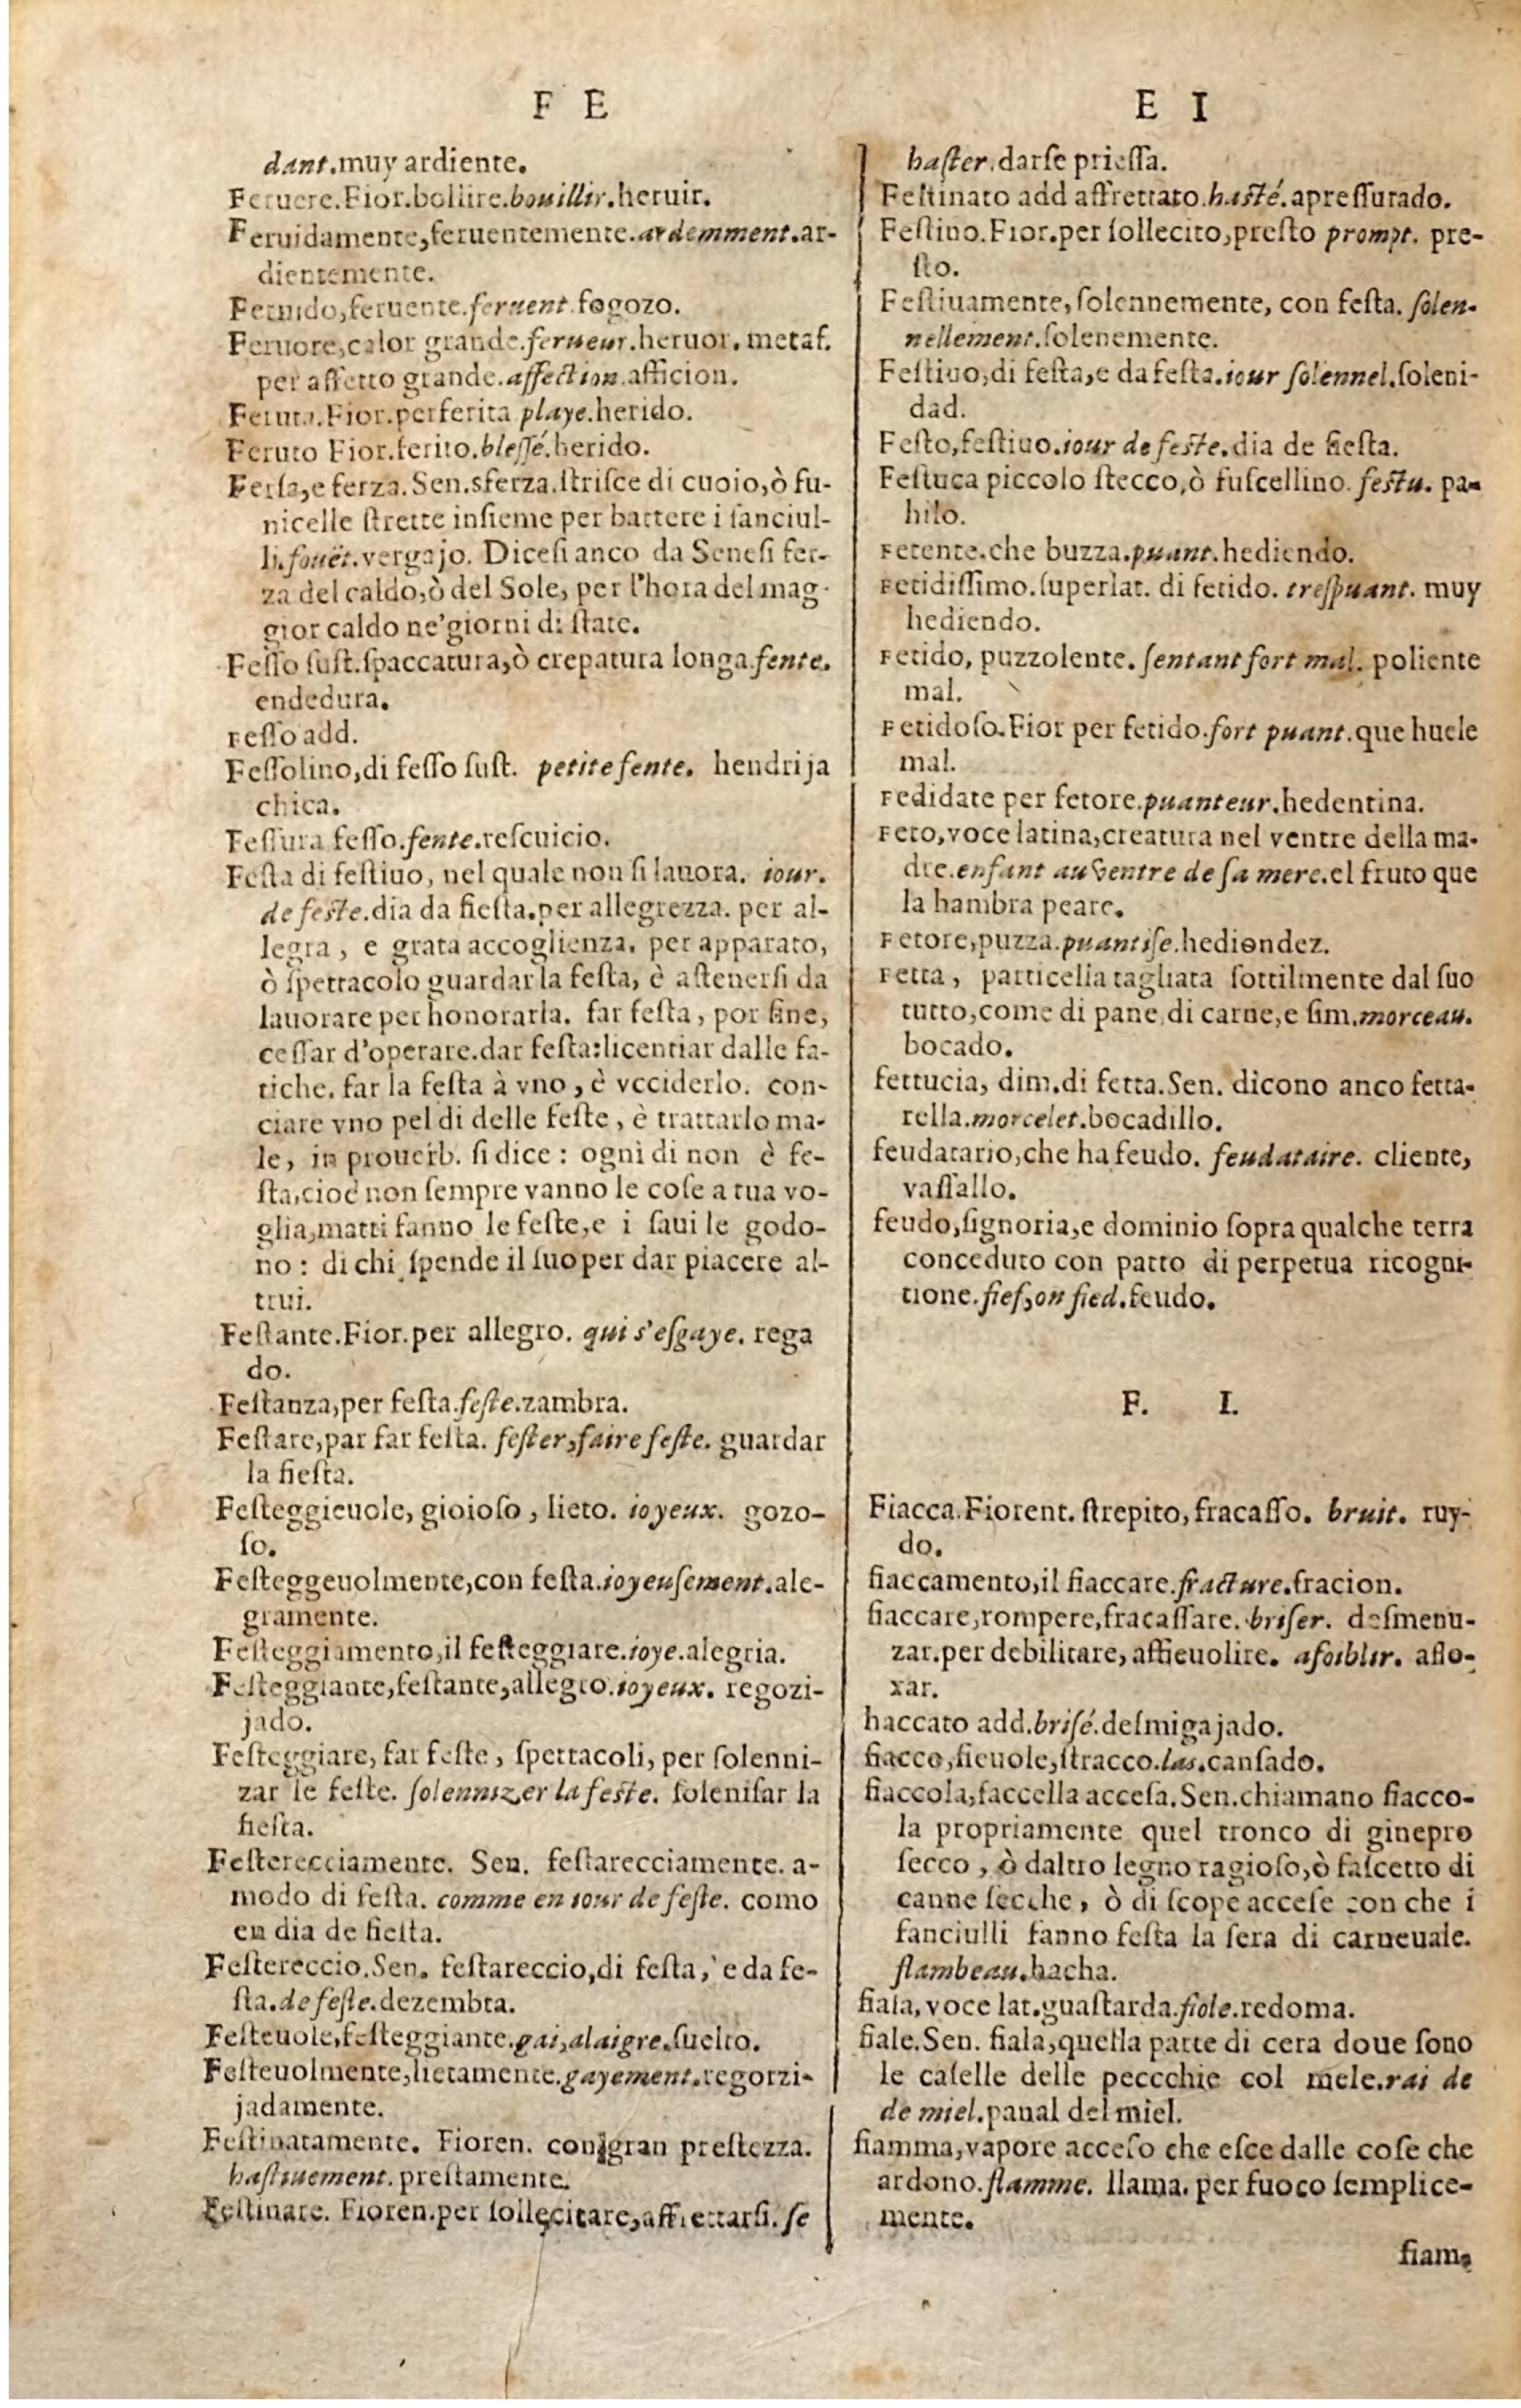 F E
dant.muy ardiente.
Feruere.Fior.bollire.bouillir.heruir.
Feruidamente,feruentemente.ardemment.ar-
dientemente.
Feruido,feruente.feruent.fogozo.
Feruore,calor grande.ferueur.heruor. metaf.
per affetto grande.affection.afficion.
Feruta.Fior.perferita playe.herido.
Feruto Fior.ferito.blessé.herido.
Fersa,e ferza.Sen.sferza.ſtriſce di cuoio,ò fu-
nicelle ſtrette inſieme per battere i fanciul-
li.fouët.vergajo. Diceſi anco da Seneſi fer-
za del caldo,ò del Sole, per l'hora del mag-
gior caldo ne'giorni di ſtate.
Feſſo ſuſt.ſpaccatura,ò crepatura longa.fente.
endedura.
Feſſo add.
Feſſolino,di feſſo ſuſt. petite fente. hendrija
chica.
Feſſura feſſo.fente.reſcuicio.
Feſta di feſtiuo, nel quale non ſi lauora. iour.
de feſte.dia da fieſta.per allegrezza. per al-
legra, e grata accoglienza. per apparato,
ò ſpettacolo guardar la feſta, è aſtenerſi da
lauorare per honorarla. far feſta, por fine,
ceſſar d'operare.dar feſta:licentiar dalle fa-
tiche. far la feſta à vno, è vcciderlo. con-
ciare vno pel di delle feſte, è trattarlo ma-
le, in prouerb. ſi dice : ogni di non è fe-
ſta,cioè non ſempre vanno le coſe a tua vo-
glia,matti fanno le feſte,e i ſaui le godo-
no : di chi ſpende il ſuo per dar piacere al-
trui.
Feſtante.Fior.per allegro. qui s'eſgaye. rega
do.
Feſtanza,per feſta.feſte.zambra.
Feſtare,par far feſta. feſter,faire feſte. guardar
la fieſta.
Feſteggieuole, gioioſo, lieto. ioyeux. gozo-
ſo.
Feſteggeuolmente,con feſta.ioyeuſement.ale-
gramente.
Feſteggiamento,il feſteggiare.ioye.alegria.
Feſteggiante,feſtante,allegro.ioyeux. regozi-
jado.
Feſteggiare, far feſte, ſpettacoli, per ſolenni-
zar le feſte. ſolennizer la feſte. ſoleniſar la
fieſta.
Feſterecciamente. Sen. feſtarecciamente. a-
modo di feſta. comme en iour de feſte. como
en dia de fieſta.
Feſtereccio.Sen. feſtareccio,di feſta, e da fe-
ſta.de feſte.dezembra.
Feſteuole,feſteggiante.gai,alaigre.ſuelto.
Feſteuolmente,lietamente.gayement.regorzi-
jadamente.
Feſtinatamente. Fioren. con gran preſtezza.
haſtiuement.preſtamente.
Feſtinare. Fioren.per ſollecitare,affrettarſi. ſe
E I
haſter.darſe prieſſa.
Feſtinato add affrettato.haſté.apreſſurado.
Feſtino.Fior.per ſollecito,preſto prompt. pre-
ſto.
Feſtiuamente,ſolennemente, con feſta. ſolen-
nellement.ſolenemente.
Feſtiuo,di feſta,e da feſta.iour ſolennel.ſoleni-
dad.
Feſto,feſtiuo.iour de feſte.dia de fieſta.
Feſtuca piccolo ſtecco,ò fuſcellino. feſtu. pa-
hilo.
Fetente.che buzza.puant.hediendo.
Fetidiſſimo.ſuperlat. di fetido. treſpuant. muy
hediendo.
Fetido, puzzolente. ſentant fort mal. poliente
mal.
Fetidoſo.Fior per fetido.fort puant.que huele
mal.
Fedidate per fetore.puanteur.hedentina.
Feto,voce latina,creatura nel ventre della ma-
dre.enfant au ventre de ſa mere.el fruto que
la hambra peare.
Fetore,puzza.puantiſe.hediondez.
Fetta, particella tagliata ſottilmente dal ſuo
tutto,come di pane di carne,e ſim.morceau.
bocado.
fettucia, dim.di fetta.Sen. dicono anco fetta-
rella.morcelet.bocadillo.
feudatario,che ha feudo. feudataire. cliente,
vaſſallo.
feudo,ſignoria,e dominio ſopra qualche terra
conceduto con patto di perpetua ricogni-
tione.fief,on fied.feudo.
F. I.
Fiacca.Fiorent. ſtrepito, fracaſſo. bruit. ruy-
do.
fiaccamento,il fiaccare.fracture.fracion.
fiaccare,rompere,fracaſſare. briſer. deſmenu-
zar.per debilitare, affieuolire. afoiblir. aflo-
xar.
haccato add.briſé.deſmigajado.
fiacco,fieuole,ſtracco.las.canſado.
fiaccola,faccella acceſa.Sen.chiamano fiacco-
la propriamente quel tronco di ginepro
ſecco, ò daltro legno ragioſo,ò faſcetto di
canne ſecche, ò di ſcope acceſe con che i
fanciulli fanno feſta la ſera di carneuale.
flambeau.hacha.
fiala, voce lat.guaſtarda.fiole.redoma.
fiale.Sen. fiala,quella parte di cera doue ſono
le caſelle delle peccchie col mele.rai de
de miel.panal del miel.
fiamma,vapore acceſo che eſce dalle coſe che
ardono.flamme. llama. per fuoco ſemplice-
mente.
fiam-